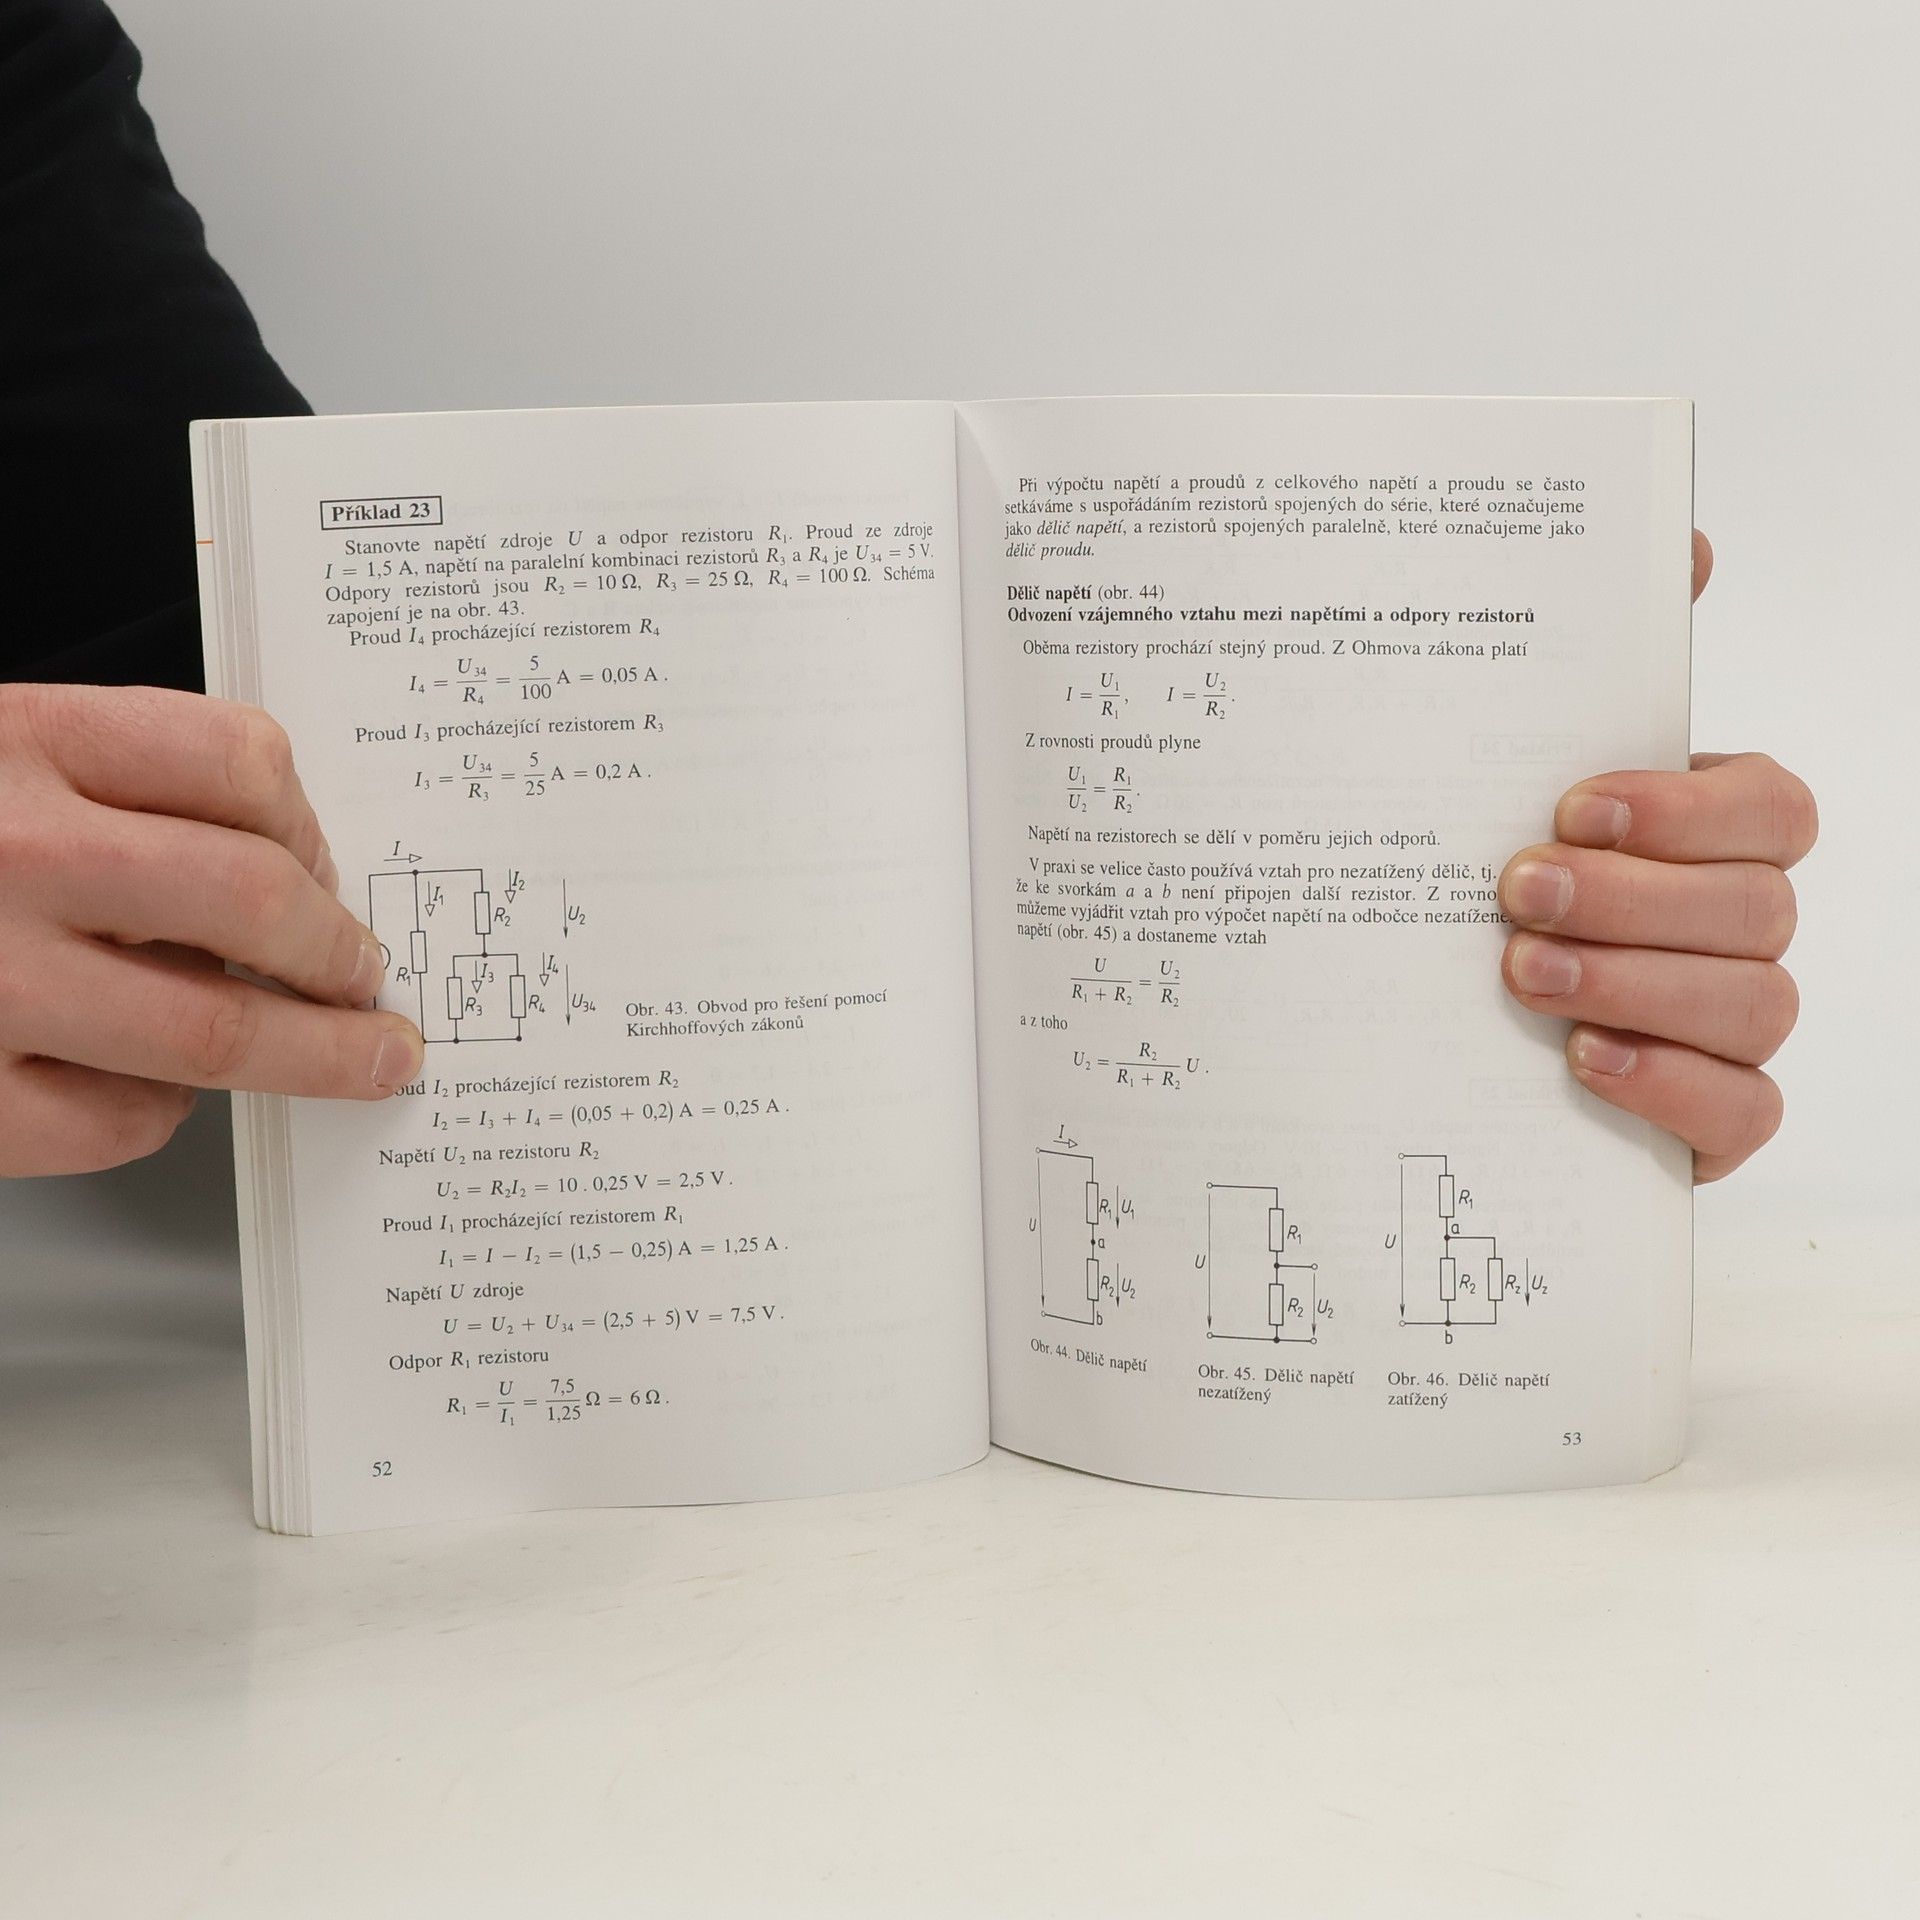 Příklad 23
Stanovte napětí zdroje U a odpor rezistoru R₁. Proud ze zdroje
I = 1,5 A, napětí na paralelní kombinaci rezistorů R₃ a R₄ je U₃₄ = 5 V.
Odpory rezistorů jsou R₂ = 10 Ω, R₃ = 25 Ω, R₄ = 100 Ω. Schéma
zapojení je na obr. 43.
Proud I₄ procházející rezistorem R₄
I₄ = U₃₄/R₄ = 5/100 A = 0,05 A.
Proud I₃ procházející rezistorem R₃
I₃ = U₃₄/R₃ = 5/25 A = 0,2 A.
I
I₁ I₂
R₂ U₂
R₁ I₃ I₄
R₃ R₄ U₃₄
Obr. 43. Obvod pro řešení pomocí
Kirchhoffových zákonů
I₂ procházející rezistorem R₂
I₂ = I₃ + I₄ = (0,05 + 0,2) A = 0,25 A.
Napětí U₂ na rezistoru R₂
U₂ = R₂I₂ = 10 . 0,25 V = 2,5 V.
Proud I₁ procházející rezistorem R₁
I₁ = I − I₂ = (1,5 − 0,25) A = 1,25 A.
Napětí U zdroje
U = U₂ + U₃₄ = (2,5 + 5) V = 7,5 V.
Odpor R₁ rezistoru
R₁ = U/I₁ = 7,5/1,25 Ω = 6 Ω.
52
Při výpočtu napětí a proudů z celkového napětí a proudu se často
setkáváme s uspořádáním rezistorů spojených do série, které označujeme
jako dělič napětí, a rezistorů spojených paralelně, které označujeme jako
dělič proudu.
Dělič napětí (obr. 44)
Odvození vzájemného vztahu mezi napětími a odpory rezistorů
Oběma rezistory prochází stejný proud. Z Ohmova zákona platí
I = U₁/R₁, I = U₂/R₂.
Z rovnosti proudů plyne
U₁/U₂ = R₁/R₂.
Napětí na rezistorech se dělí v poměru jejich odporů.
V praxi se velice často používá vztah pro nezatížený dělič, tj.
že ke svorkám a a b není připojen další rezistor. Z
můžeme vyjádřit vztah pro výpočet napětí na odbočce
napětí (obr. 45) a dostaneme vztah
U/(R₁ + R₂) = U₂/R₂
a z toho
U₂ = R₂/(R₁ + R₂) U.
I
U R₁ U₁
a
R₂ U₂
b
Obr. 44. Dělič napětí
U R₁
R₂ U₂
Obr. 45. Dělič napětí
nezatížený
U R₁
a
R₂ R_z U_z
b
Obr. 46. Dělič napětí
zatížený
53